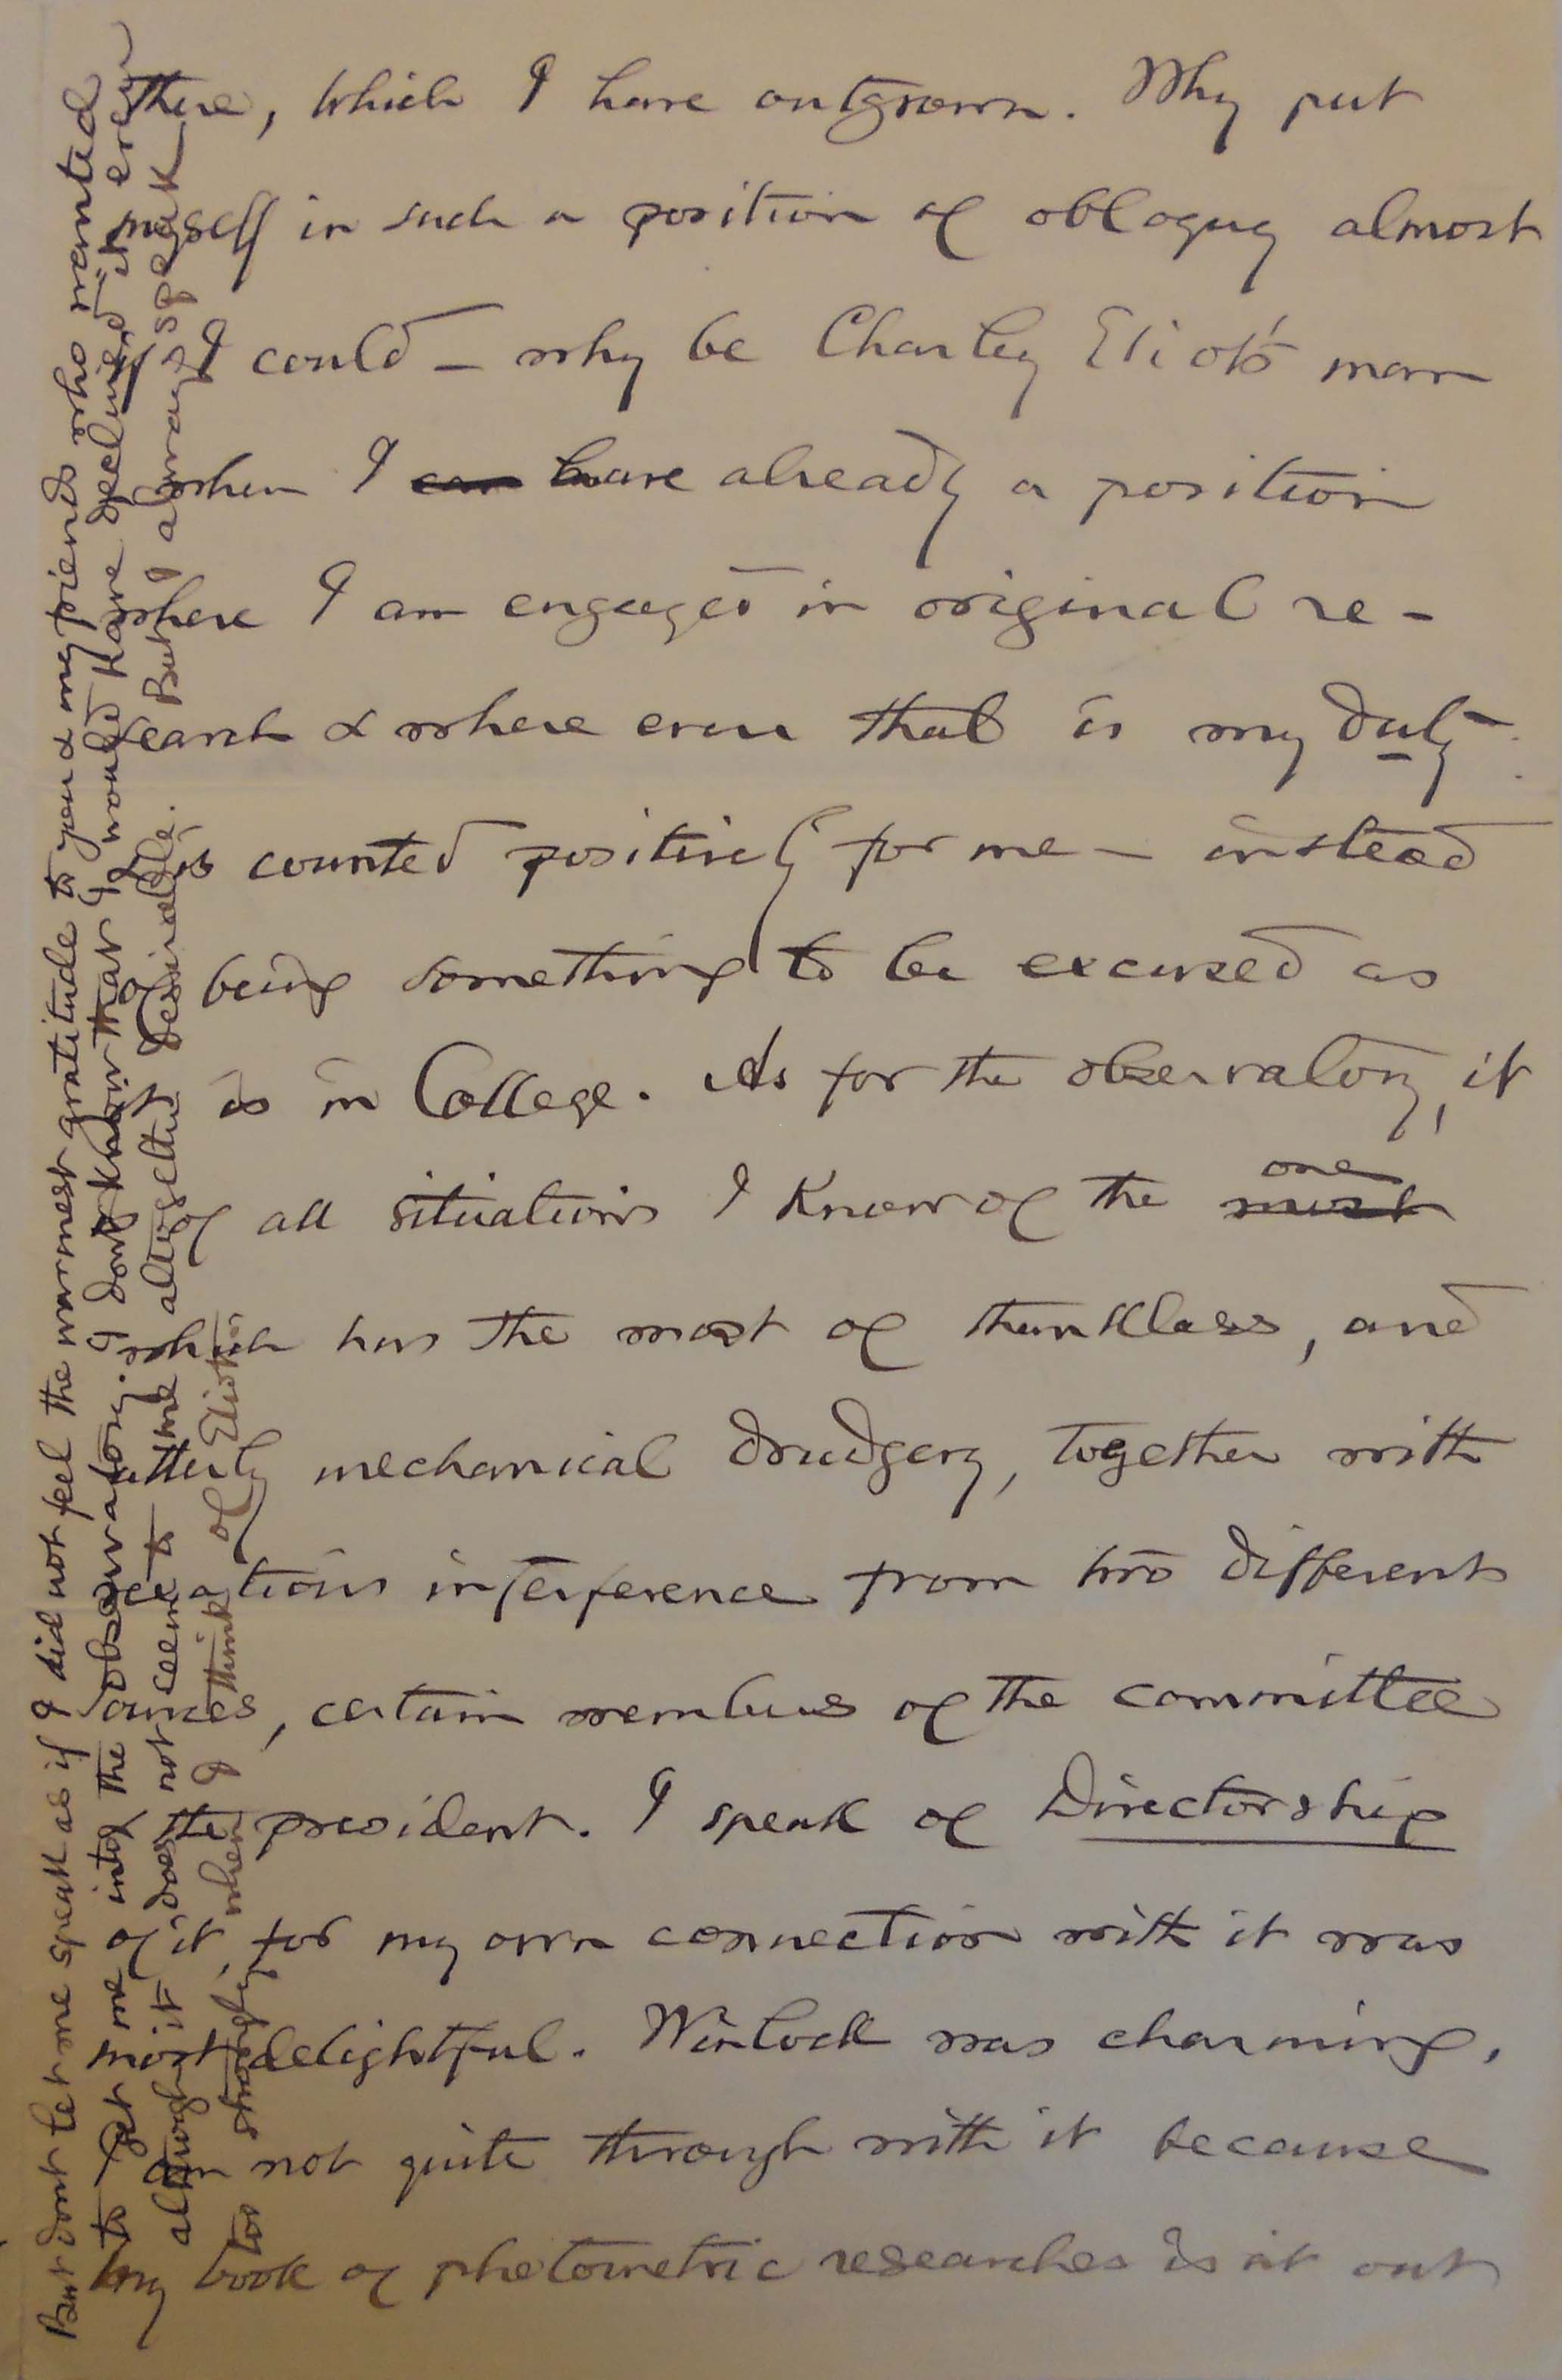 there, which I have outgrown. Why put
myself in such a position of obloquy almost
if I could – why be Charley Eliot's man
when I can have already a position
where I am engaged in original re-
search & where even that is my duty
& is counted positively for me – instead
of being something to be excused as
it is in College. As for the observatory, it
is of all situations I know of the most one
which has the most of thankless, and
utterly mechanical drudgery, together with
vexatious interference from two different
sources, certain members of the committee
& the president. I speak of Directorship
of it, for my own connection with it was
most delightful. Winlock was charming.
I am not quite through with it because
my book of photometric researches isn't out
But dont let me speak as if I did not feel the warmest gratitude to you & my friends who wanted
to get me into the observatory. I dont know that I would have declined it even
although it does not seem to me altogether desirable. But I always speak
too strongly when I think of Eliot